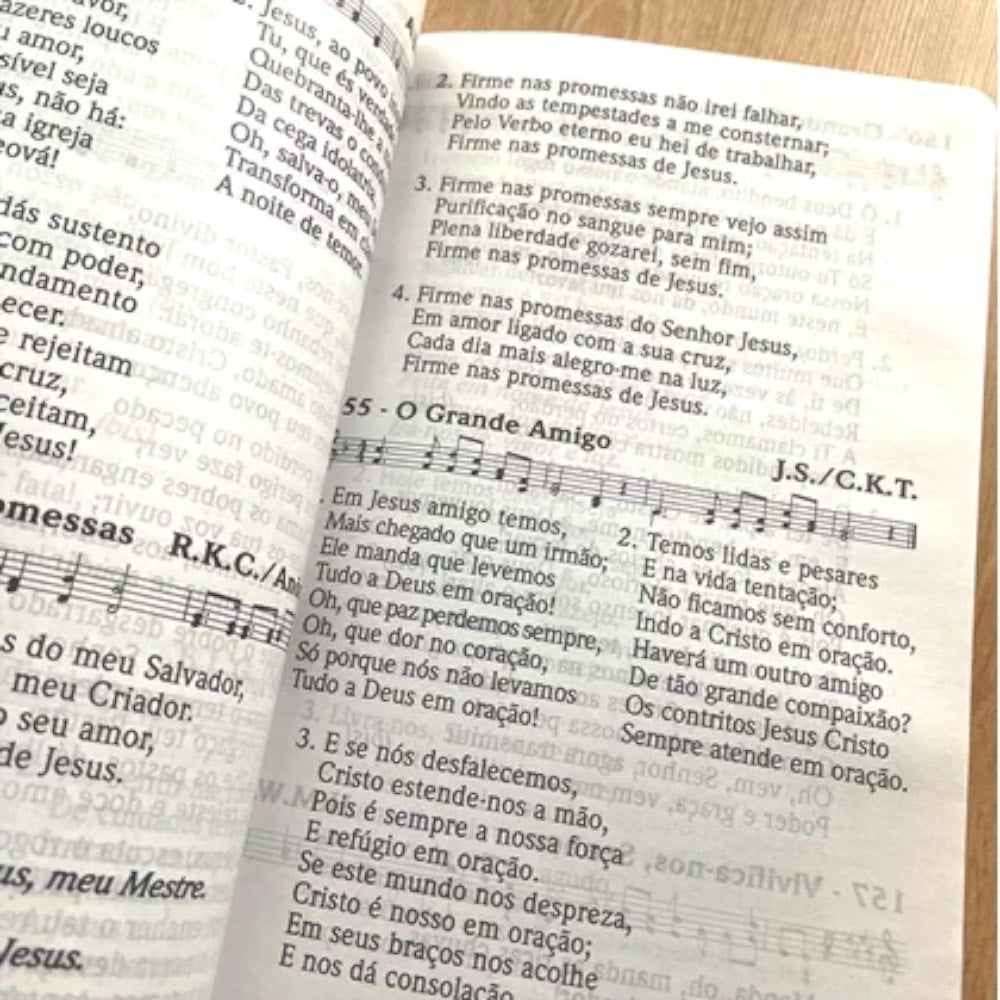 azeres loucos
amor,
seja
não há:
igreja
sustento
com poder,
rejeitam
cruz,
Jesus!
R.K.C./
do meu Salvador,
meu Criador.
seu amor,
de Jesus.
meu Mestre.
Jesus.
2. Jesus, ao povo
Tu, que és
Quebranta-lhe,
Das trevas o
Da cega idolatria
Oh, salva-o, meu
Transforma em
A noite de temor.
2. Firme nas promessas não irei falhar,
Vindo as tempestades a me consternar;
Pelo Verbo eterno eu hei de trabalhar,
Firme nas promessas de Jesus.
3. Firme nas promessas sempre vejo assim
Purificação no sangue para mim;
Plena liberdade gozarei, sem fim,
Firme nas promessas de Jesus.
4. Firme nas promessas do Senhor Jesus,
Em amor ligado com a sua cruz,
Cada dia mais alegro-me na luz,
Firme nas promessas de Jesus.
55 - O Grande Amigo
J.S./C.K.T.
. Em Jesus amigo temos,
Mais chegado que um irmão;
Ele manda que levemos
Tudo a Deus em oração!
Oh, que paz perdemos sempre,
Oh, que dor no coração,
Só porque nós não levamos
Tudo a Deus em oração!
2. Temos lidas e pesares
E na vida tentação;
Não ficamos sem conforto,
Indo a Cristo em oração.
Haverá um outro amigo
De tão grande compaixão?
Os contritos Jesus Cristo
Sempre atende em oração.
3. E se nós desfalecemos,
Cristo estende-nos a mão,
Pois é sempre a nossa força
E refúgio em oração.
Se este mundo nos despreza,
Cristo é nosso em oração;
Em seus braços nos acolhe
E nos dá consolação